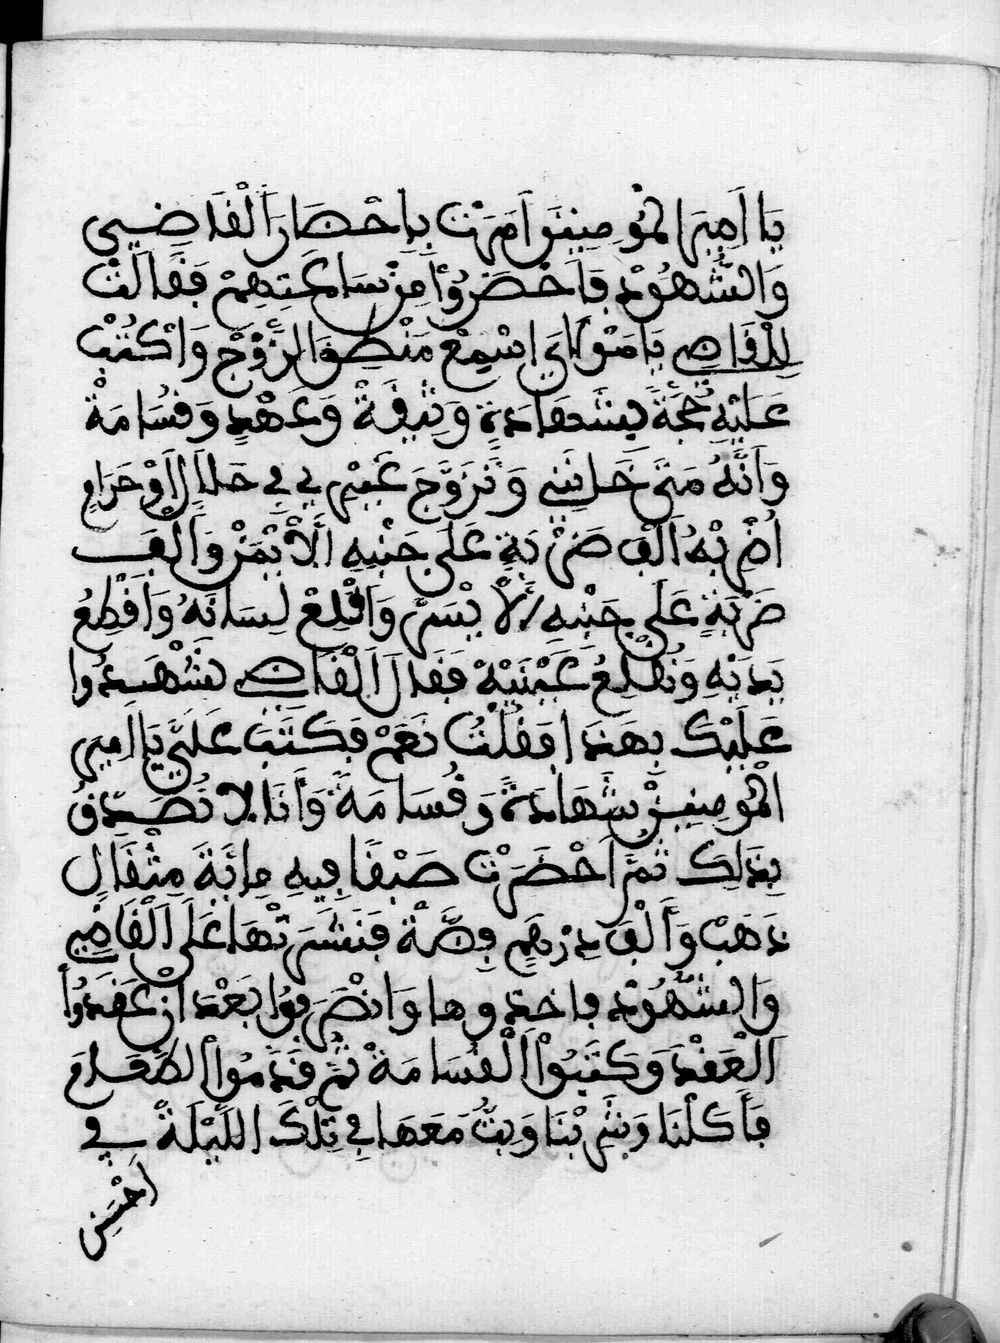 يَا أَمِيرَ الْمُومِنِينَ أَمَرَتْ بِإِحْضَارِ الْقَاضِي
وَالشُّهُودِ فَأَحْضَرُوا مِنْ سَاعَتِهِمْ فَقَالَتْ
لِلْقَاضِي يَا مَوْلَايَ اسْمِعْ مَنْطِقَ الزَّوْجِ وَاكْتُبْ
عَلَيْهِ حُجَّةً بِشَهَادَةٍ وَثِيقَةْ وَعَهْدٍ وَقُسَامَةْ
وَأَنَّهُ مَتَى خَلَّانِي وَتَزَوَّجَ غَيْرِي فِي حَلَالٍ أَوْ حَرَامٍ
أَضْرِبْهُ أَلْفَ ضَرْبَةٍ عَلَى جَنْبِهِ الْأَيْمَنْ وَأَلْفَ
ضَرْبَةٍ عَلَى جَنْبِهِ الْأَيْسَرْ وَأَقْلِعْ لِسَانَهُ وَأَقْطِعُ
يَدَيْهِ وَنُقْلِعُ عَيْنَيْهْ فَقَالَ الْقَاضِي نَشْهَدُوا
عَلَيْكَ بِهَذَا فَقُلْتُ نَعَمْ فَكَتَبَ عَلَيَّ يَا امِيرَ
الْمُومِنِينْ بِشَهَادَةْ وَقُسَامَةْ وَأَنَا لَا نُصَدِّقُ
بِذَلِكَ ثُمَّ أَحْضَرَتْ صَبْقًا فِيهِ مِائَةَ مِثْقَالِ
ذَهَبْ وَأَلْفَ دِرْهَمٍ فِضَّةْ فَنَشَرَتْهَا عَلَى الْقَاضِي
وَالشُّهُودِ فاخذوها وَانْصَرَفُوا بَعْدَ أَنْ عَقَدُوا
الْعَقْدَ وَكَتَبُوا الْقُسَامَةْ ثُمَّ قَدَّمُوا الطَّعَامَ
فَأَكَلْنَا وَشَرِبْنَا وَبِتُّ مَعَهَا فِي تِلْكَ اللَّيْلَةْ فِي
أَحْسَنِ